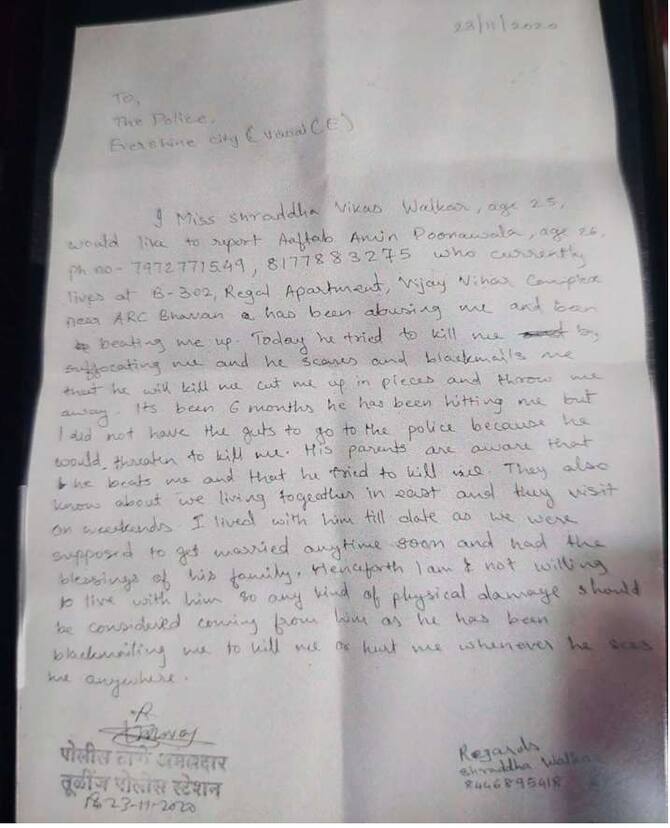 23/11/2020
To,
The Police,
Evershine city (Vasai (E)
I Miss Shraddha Vikas Walkar, age 25,
would like to report Aaftab Amin Poonawala, age 26,
ph no - 7972771549, 8177883275 who currently
lives at B-302, Regal Apartment, Vijay Vihar Complex
near ARC Bhavan has been abusing me and been
beating me up. Today he tried to kill me by
suffocating me and he scares and blackmails me
that he will kill me cut me up in pieces and throw me
away. Its been 6 months he has been hitting me but
I did not have the guts to go to the police because he
would threaten to kill me. His parents are aware that
he beats me and that he tried to kill me. They also
know about we living togeather in east and they visit
on weekends. I lived with him till date as we were
supposed to get married anytime soon and had the
blessings of his family. Henceforth I am not willing
to live with him so any kind of physical damage should
be considered coming from him as he has been
blackmailing me to kill me or hurt me whenever he sees
me anywhere.
पोलीस ठाणे अंमलदार
तूळींज पोलीस स्टेशन
23-11-2020
Regards
Shraddha Walkar
8446895418